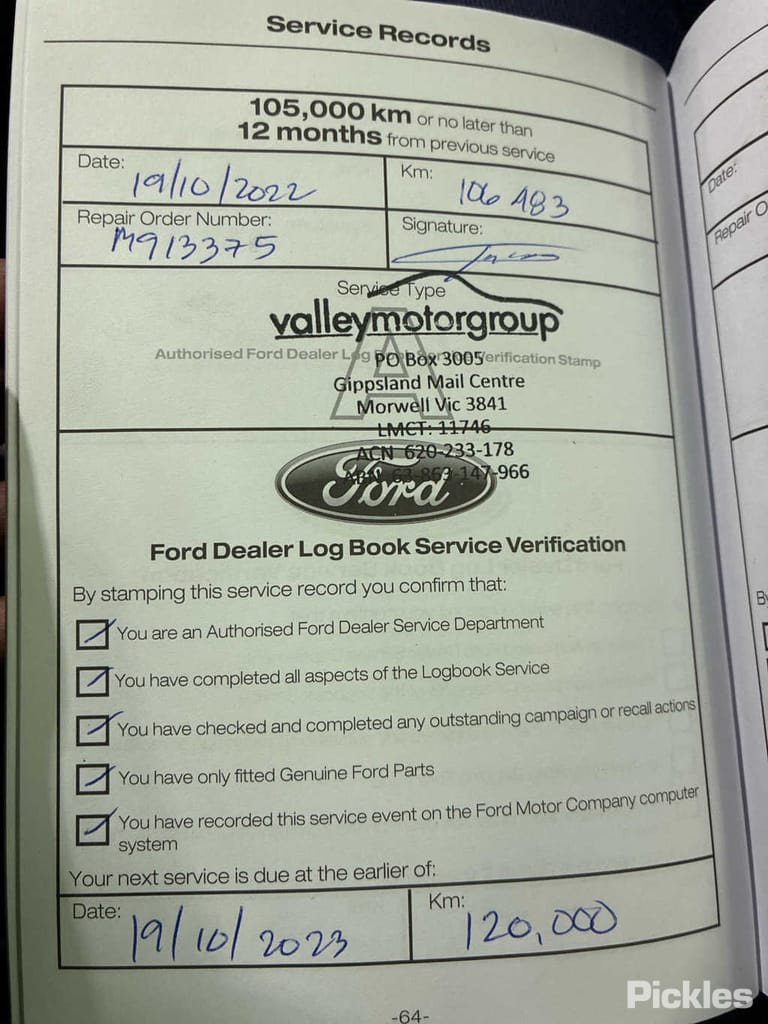 Service Records
105,000 km or no later than
12 months from previous service
Date:
19/10/2022
Km:
106 483
Repair Order Number:
M913375
Signature:
Service Type
A
valleymotorgroup
Authorised Ford Dealer Log Verification Stamp
PO Box 3005
Gippsland Mail Centre
Morwell Vic 3841
LMCT: 11746
ACN 620-233-178
ABN 63-863-147-966
Ford
Ford Dealer Log Book Service Verification
By stamping this service record you confirm that:
You are an Authorised Ford Dealer Service Department
You have completed all aspects of the Logbook Service
You have checked and completed any outstanding campaign or recall actions
You have only fitted Genuine Ford Parts
You have recorded this service event on the Ford Motor Company computer
system
Your next service is due at the earlier of:
Date:
19/10/2023
Km:
120,000
-64-
Date:
Repair O
By
Pickles